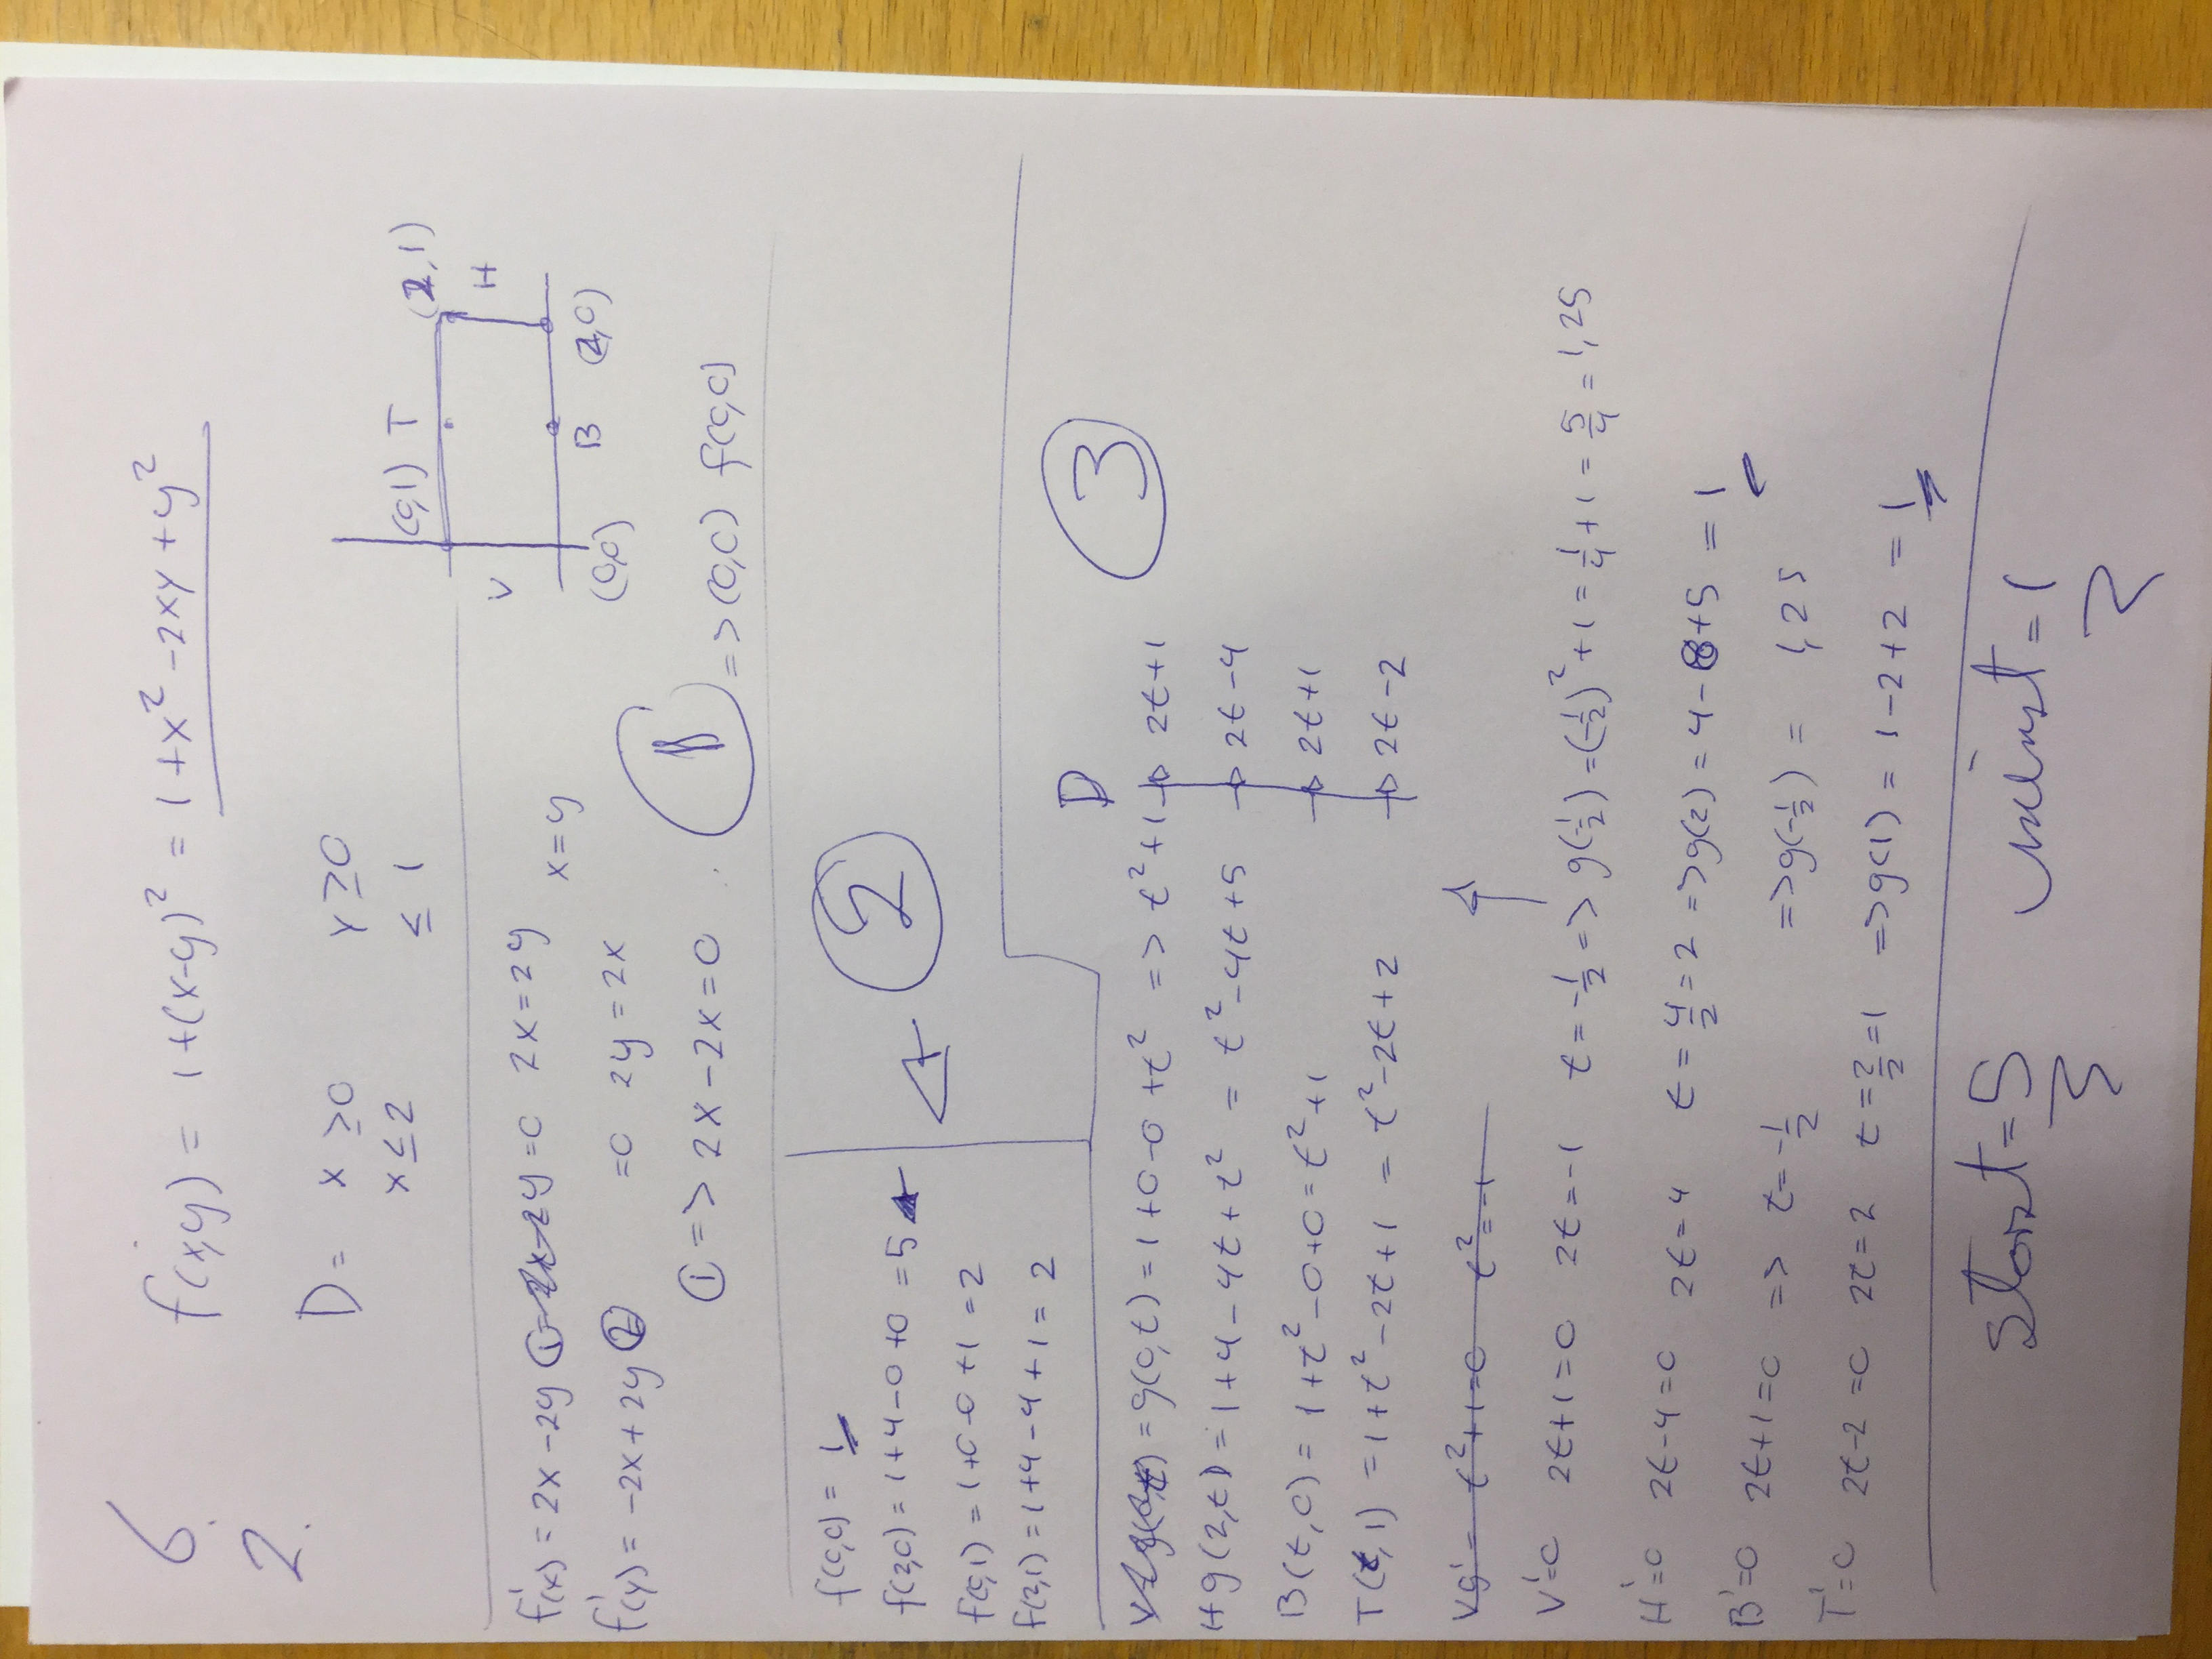 6.
2.
f(x,y) = 1+(x-y)² = 1+x²-2xy+y²
D= x ≥0 y ≥0
x ≤ 2 ≤ 1
(0,1) T (2,1)
V H
(0,0) B (2,0)
f'(x) = 2x-2y ① =0 2x=2y x=y
f'(y) = -2x+2y ② =0 2y=2x
① => 2x-2x=0 ① => (0,0) f(0,0)
f(0,0) = 1
f(2,0) = 1+4-0+0 = 5
f(0,1) = 1+0-0+1 = 2
f(2,1) = 1+4-4+1 = 2
②
③
D
= g(0,t) = 1+0-0+t² => t²+1 → 2t+1
H g(2,t) = 1+4-4t+t² = t²-4t+5 → 2t-4
B(t,0) = 1+t²-0+0 = t²+1 → 2t+1
T(t,1) = 1+t²-2t+1 = t²-2t+2 → 2t-2
Vg' = t²+1=0 t²=-1
V'=0 2t+1=0 2t=-1 t=-1/2 => g(-1/2) = (-1/2)²+1 = 1/4+1 = 5/4 = 1,25
H'=0 2t-4=0 2t=4 t=4/2=2 => g(2) = 4-8+5 = 1
B'=0 2t+1=0 => t=-1/2 => g(-1/2) = 1,25
T'=0 2t-2=0 2t=2 t=2/2=1 => g(1) = 1-2+2 = 1
störst = 5 minst = 1